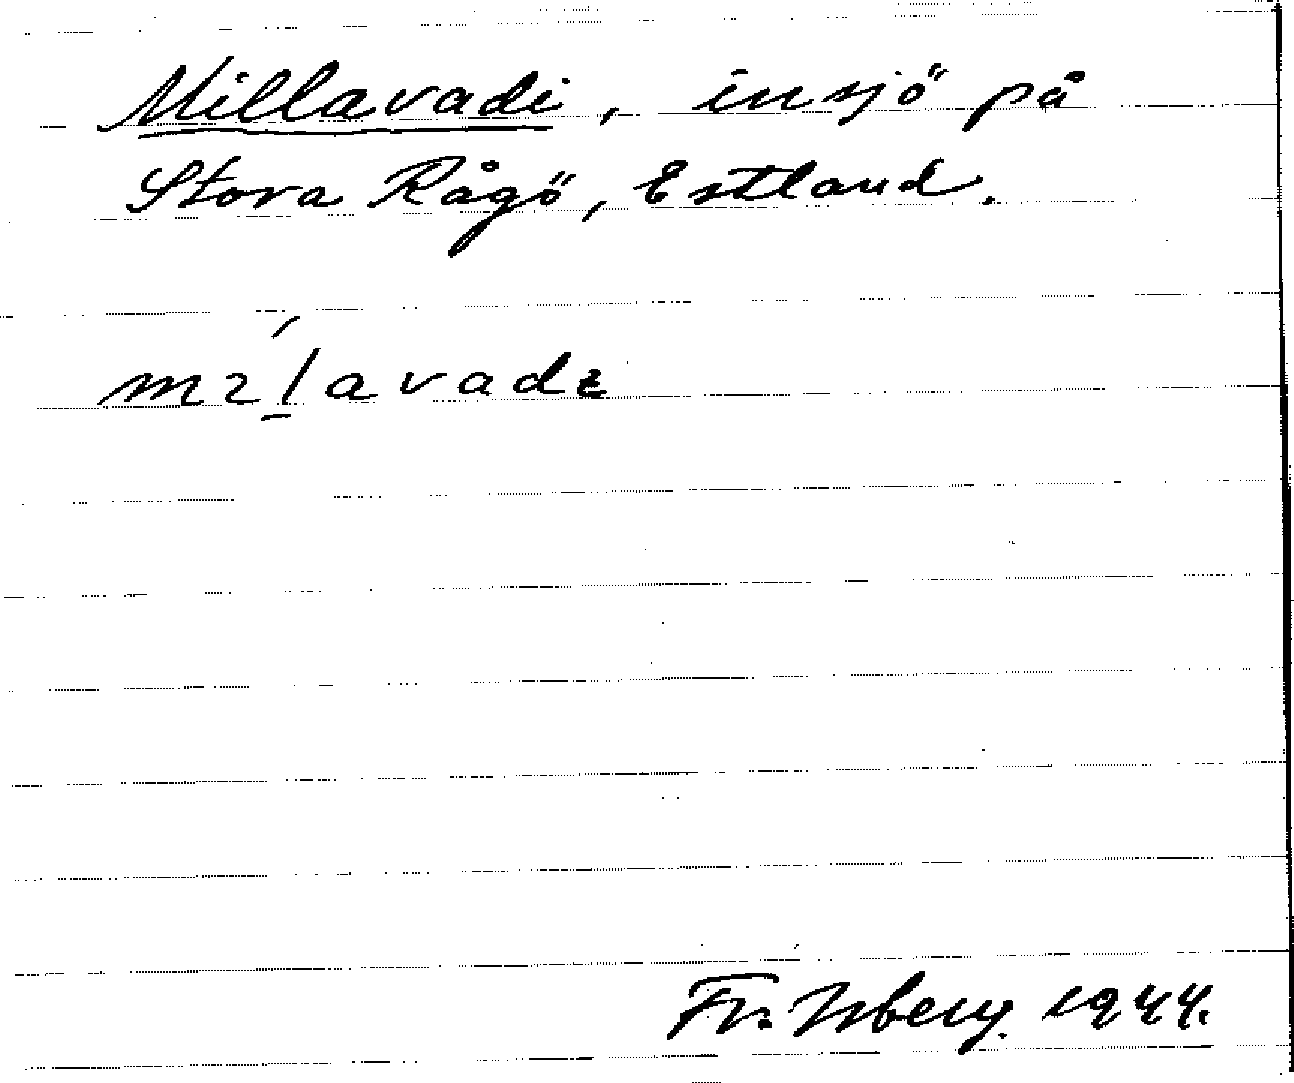 Millavadi, insjö på
Stora Rågö, Estland.
mɩ́l̲avadɩ
Fr. Isberg. 1944.